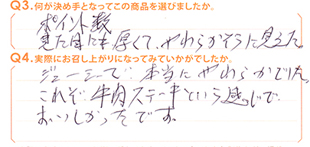 Q3.何が決め手となってこの商品を選びましたか。
ポイント数
見た目にも厚くて、やわらかそうに見えた
Q4.実際にお召し上がりになってみていかがでしたか。
ジューシーで本当にやわらかでした。
これぞ牛肉ステーキという感じで
おいしかったです。